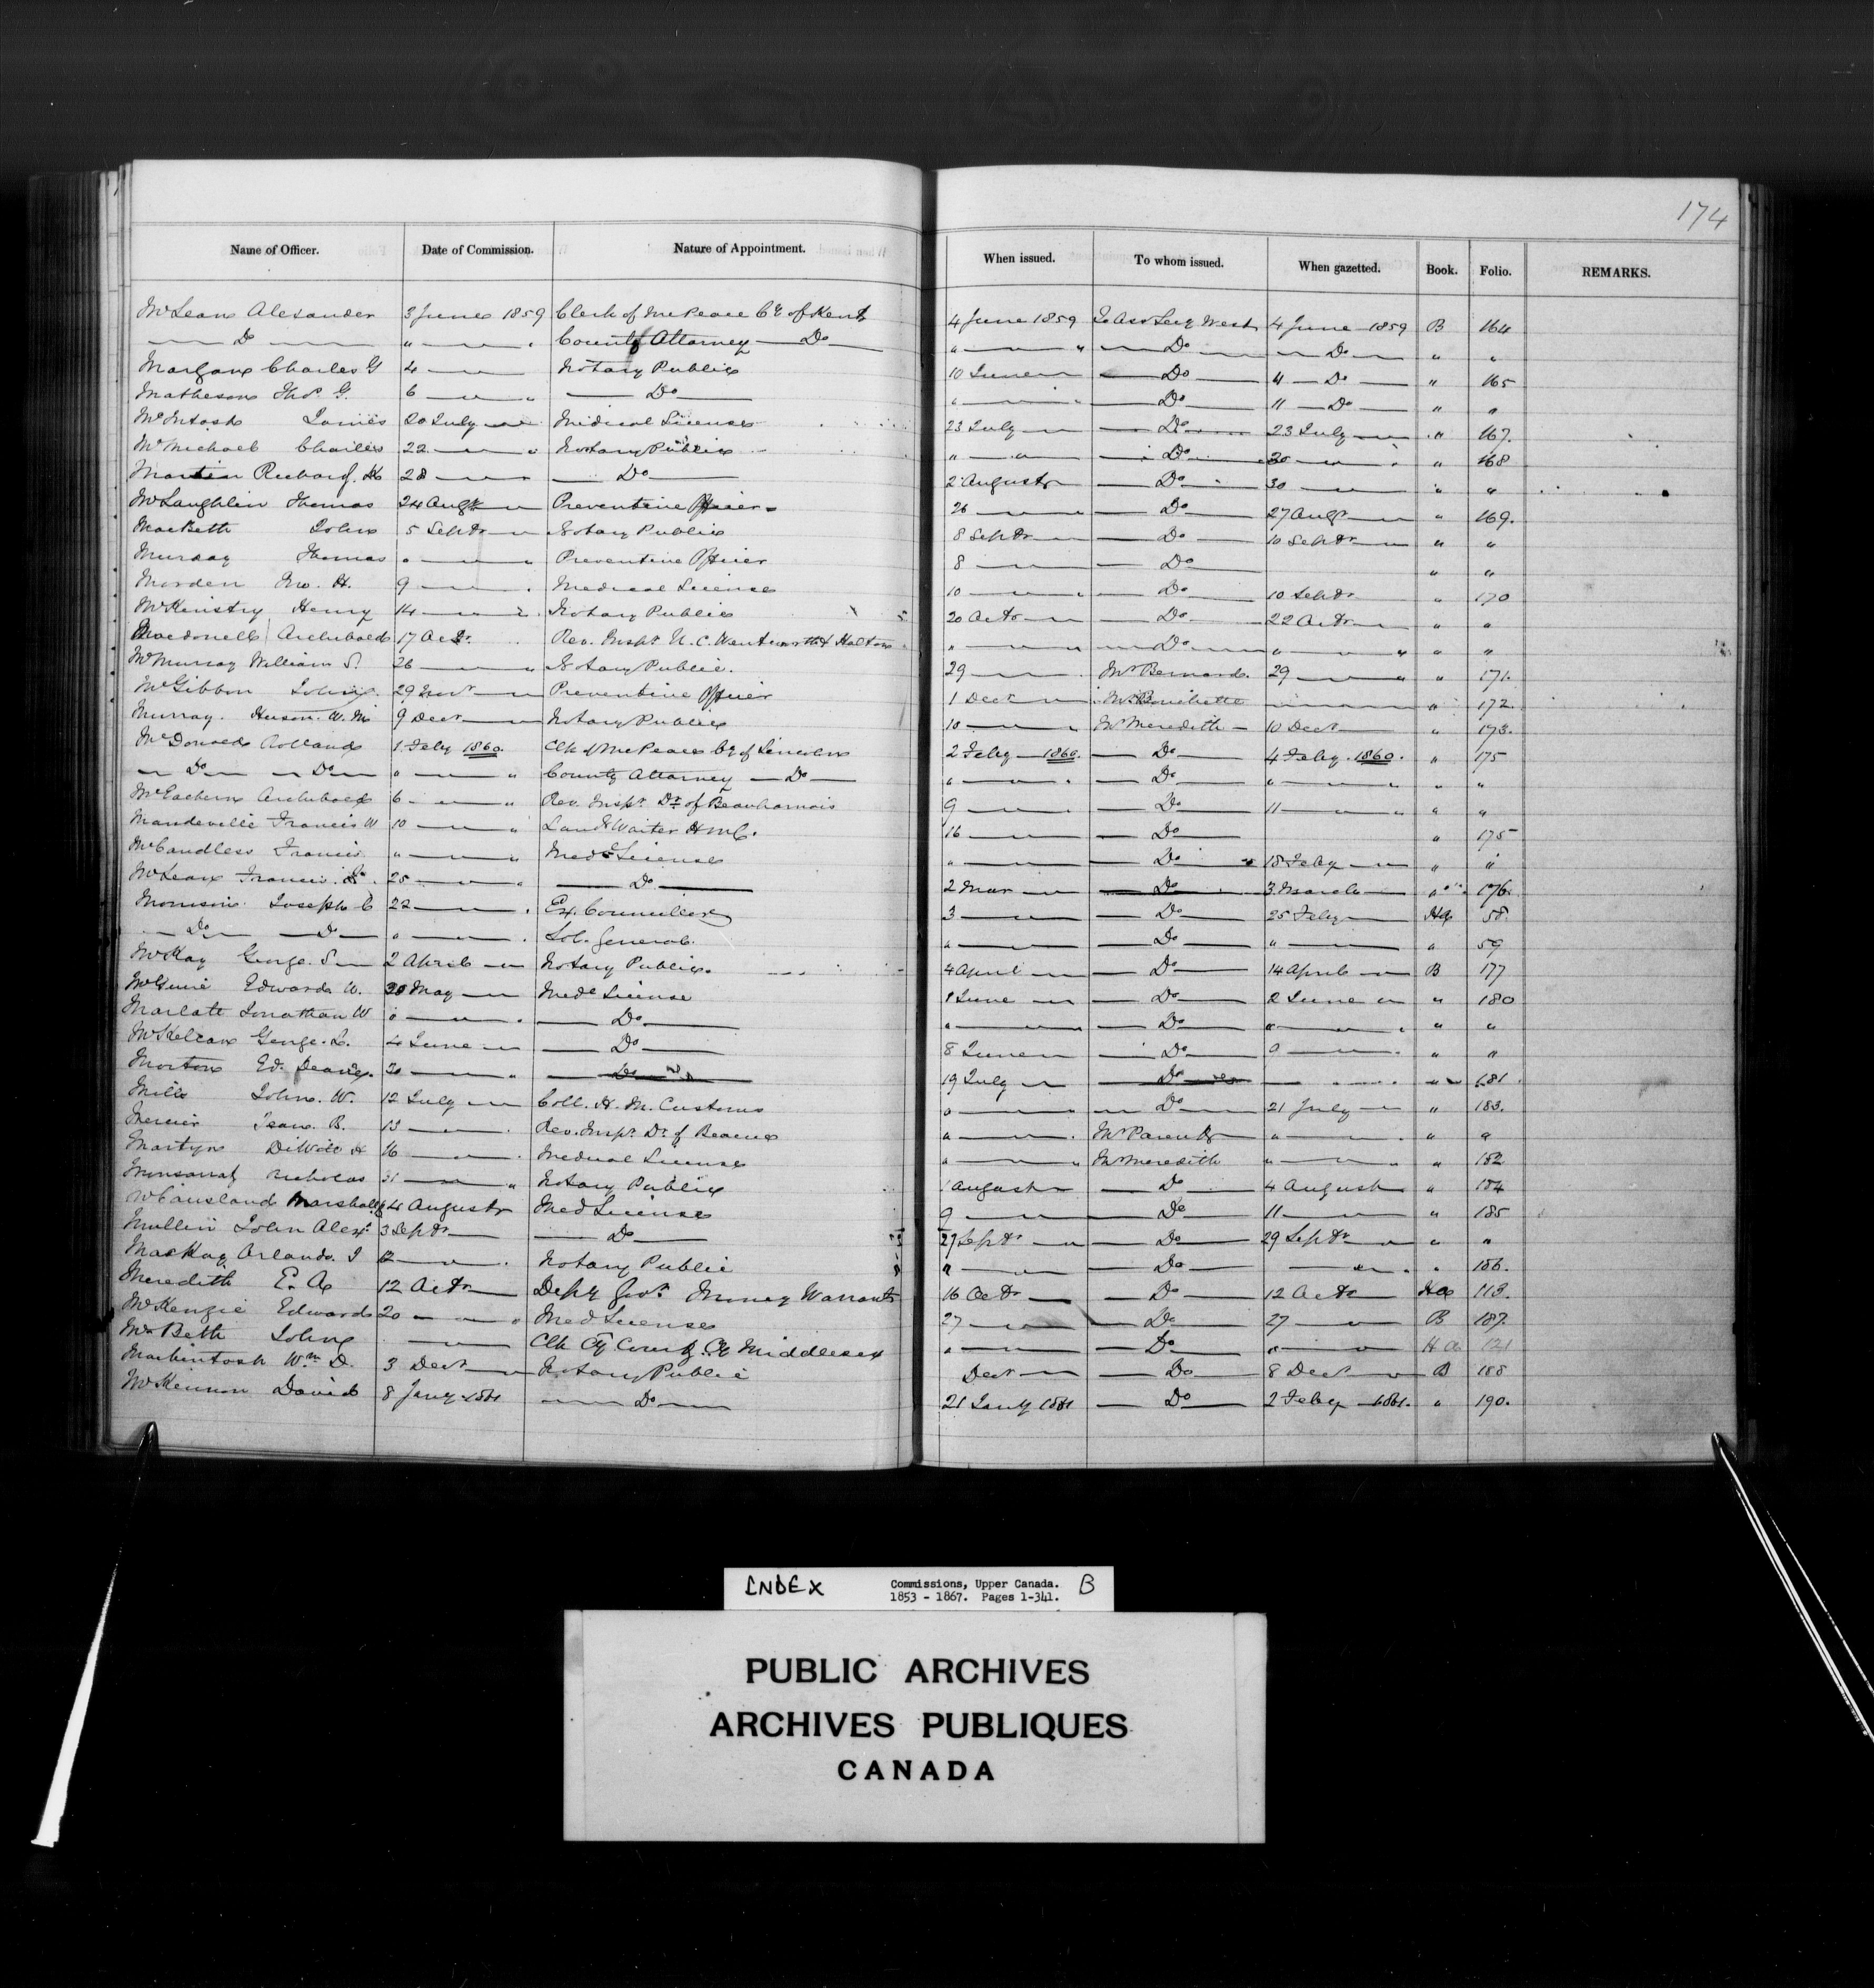 174
Name of Officer. Date of Commission. Nature of Appointment. When issued. To whom issued. When gazetted. Book. Folio. REMARKS.
McLean Alexander 3 June 1859 Clerk of the Peace Cy of Kent 4 June 1859 To Asst Secy West 4 June 1859 B 164
— Do — " — " County Attorney — Do — " — " — Do — — Do — " "
Morgan Charles G 4 — " Notary Public 10 June — Do — 11 — Do — " 165
Matheson Thos. G. 6 — " — Do — " — " — Do — 11 — Do — " "
McIntosh James 20 July — " Medical License 23 July — " — Do — 23 July — " " 167.
McMichael Charles 22 — " Notary Public " — " — Do — 30 — " " 168
Martin Richard. H 28 — " — Do — 2 August — Do — 30 — " "
McLaughlin Thomas 24 Augt — " Preventive Officer 26 — " — Do — 27 Augt — " " 169.
MacBeth John 5 Septr — " Notary Public 8 Septr — " — Do — 10 Septr — " " "
Murray Thomas " — " Preventive Officer 8 — " — Do — " "
Morden Geo. H. 9 — " Medical License 10 — " — Do — 10 Septr " 170
McKinstry Henry 14 — " Notary Public 20 Octr — " — Do — 22 Octr — " " "
Macdonell Archibald 17 Octr. Rev. Inspr U. C. Wentworth & Halton " — " — Do — " — " " "
McMurray William S. 26 — " Notary Public. 29 — " Mr Bernard. 29 — " " 171.
McGibbon John 29 Novr — " Preventive Officer 1 Decr — " Mr Bouchette — " — " 172.
Murray. Huson. W. M. 9 Decr — " Notary Public 10 — " Mr Meredith — 10 Decr — " 173.
McDonald Rolland 1 Feby 1860. Clk of the Peace Cy of Lincoln 2 Feby — 1860. — Do — 4 Feby. 1860. " 175
— Do — — Do — " — " County Attorney — Do — " — " — Do — " — " " "
McEachern Archibald 6 — " Rev. Inspr. Dt of Beauharnois 9 — " — Do — 11 — " " "
Mandeville Francis W 10 — " Land Waiter H M C. 16 — " — Do — " 175
McCandless Francis " — " Medl License " — " — Do — 18 Feby — " " "
McLean Francis. 25 — " — Do — 2 Mar — " — Do — 3 March — " 176.
Morrison Joseph C 22 — " Ex. Councillor 3 — " — Do — 25 Feby — Ha 58.
— Do — — Do — " — " Sol. General. " — " — Do — " — " 59
McKay George. S — 2 April — " Notary Public. 4 April — " — Do — 14 April — " B 177
Edward W. 30 May — " Medl License 1 June — " — Do — 2 June — " " 180
Marlatt Jonathan W " — " — Do — " — " — Do — " — " " "
McKelcan George. L. 4 June — " — Do — 8 June — " — Do — 9 — " " "
Morton Ed. Deane. 20 — " — Do — 19 July — " — Do — " 181
Mills John. W. 12 July — " Coll. H. M. Customs " — " — Do — 21 July — " " 183.
Mercier Jean. B. 13 — " Rev. Inspr. Dt. of Beauce " — " Mr Parent — " — " " "
Martyn DeWitt H 16 — " Medical License " — " Mr Meredith " — " " 182
Monsarrat Nicholas 31 — " Notary Public 1 August — — Do — 4 August — " 184
McCausland Marshall 4 August Med License 9 — " — Do — 11 — " " 185
Mullin John Alexr. 3 Septr — — Do — 27 Septr — " — Do — 29 Septr — " " "
MacKay Orlando. J 12 — " Notary Public " — " — Do — " 186.
Meredith E. A. 12 Octr — Depy Govr. Money Warrants 16 Octr — — Do — 12 Octr — Ha 113.
McKenzie Edward 20 — " Med License 27 — " — Do — 27 — " B 187.
McBeth John — " Clk Cy Court Cy Middlesex " — " — Do — " — " Ha 121
Mackintosh Wm D. 3 Decr — " Notary Public Decr — " — Do — 8 Decr — " B 188
McKinnon David 8 Jany 1861 — Do — 21 Jany 1861 — Do — 2 Feby — 1861. " 190.
INDEX Commissions, Upper Canada. B
1853 - 1867. Pages 1-341.
PUBLIC ARCHIVES
ARCHIVES PUBLIQUES
CANADA